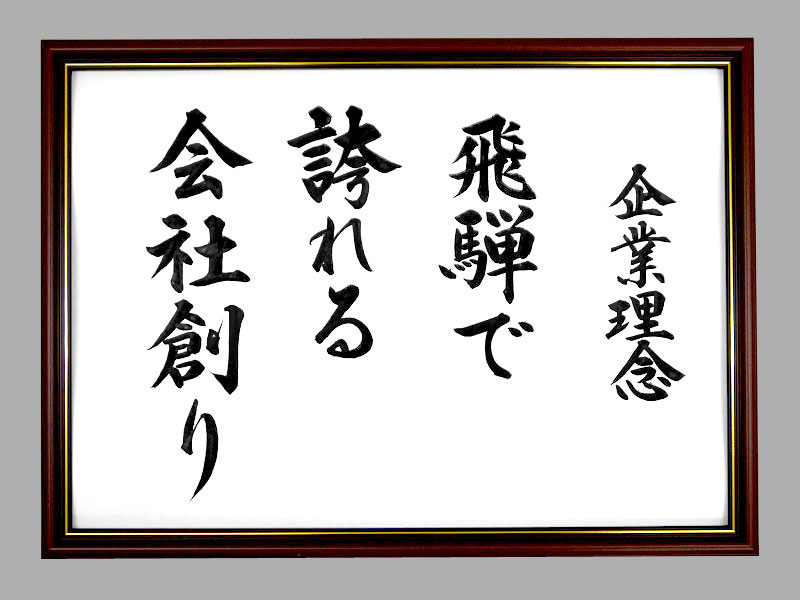 企業理念
飛騨で
誇れる
会社創り